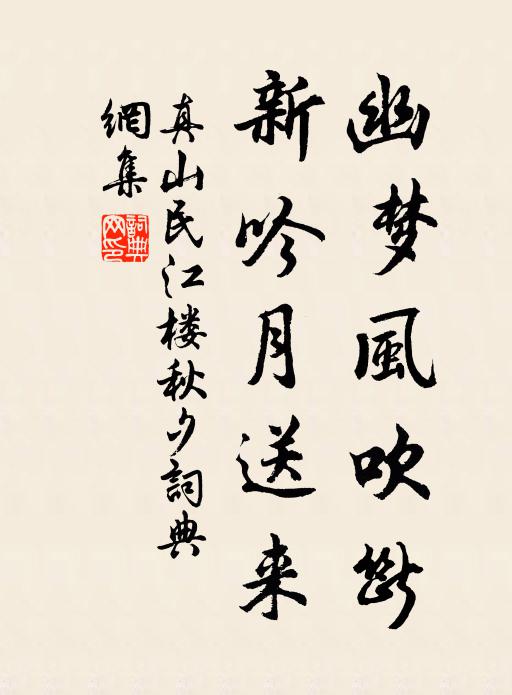 幽梦風吹断
新吟月送来
真山民江楼秋夕詞典
網集
詞典網印